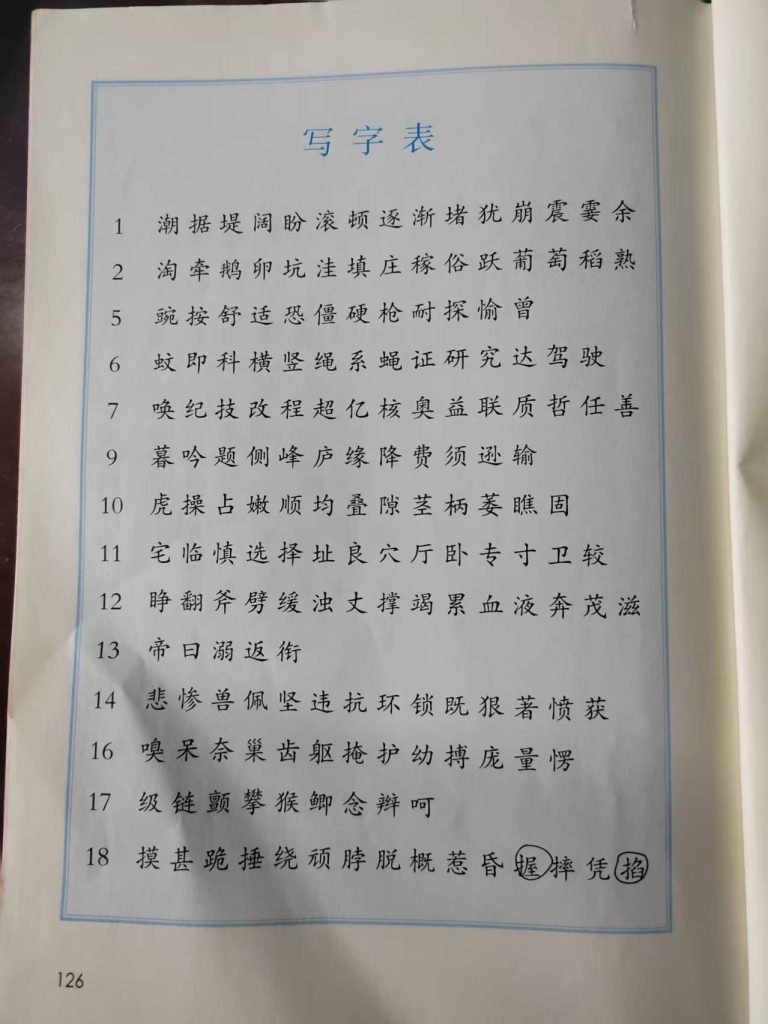 写字表
1 潮据堤阔盼滚顿逐渐堵犹崩震霎余
2 淘牵鹅卵坑洼填庄稼俗跃葡萄稻熟
5 豌按舒适恐僵硬枪耐探愉曾
6 蚊即科横竖绳系蝇证研究达驾驶
7 唤纪技改程超亿核奥益联质哲任善
9 暮吟题侧峰庐缘降费须逊输
10 虎操占嫩顺均叠隙茎柄萎瞧固
11 宅临慎选择址良穴厅卧专寸卫较
12 睁翻斧劈缓浊丈撑竭累血液奔茂滋
13 帝曰溺返衔
14 悲惨兽佩坚违抗环锁既狠著愤获
16 嗅呆奈巢齿躯掩护幼搏庞量愣
17 级链颤攀猴鲫念辫呵
18 摸甚跪捶绕顽脖脱概惹昏握摔凭掐
126